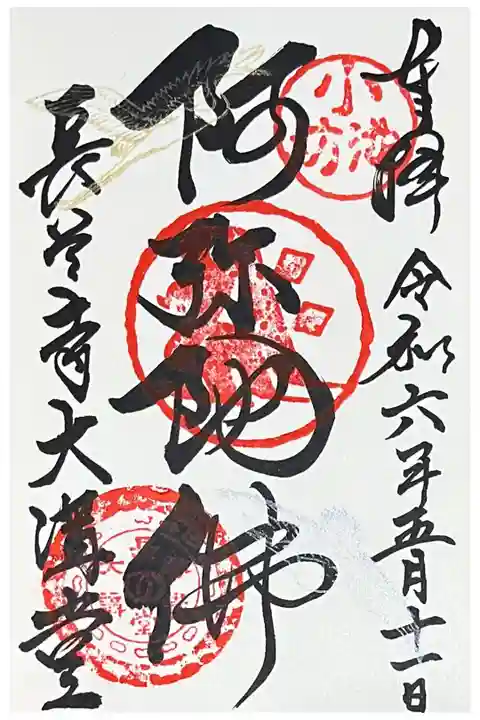 奉拝 令和六年五月十一日
小池坊
阿弥陀佛
長谷寺大講堂